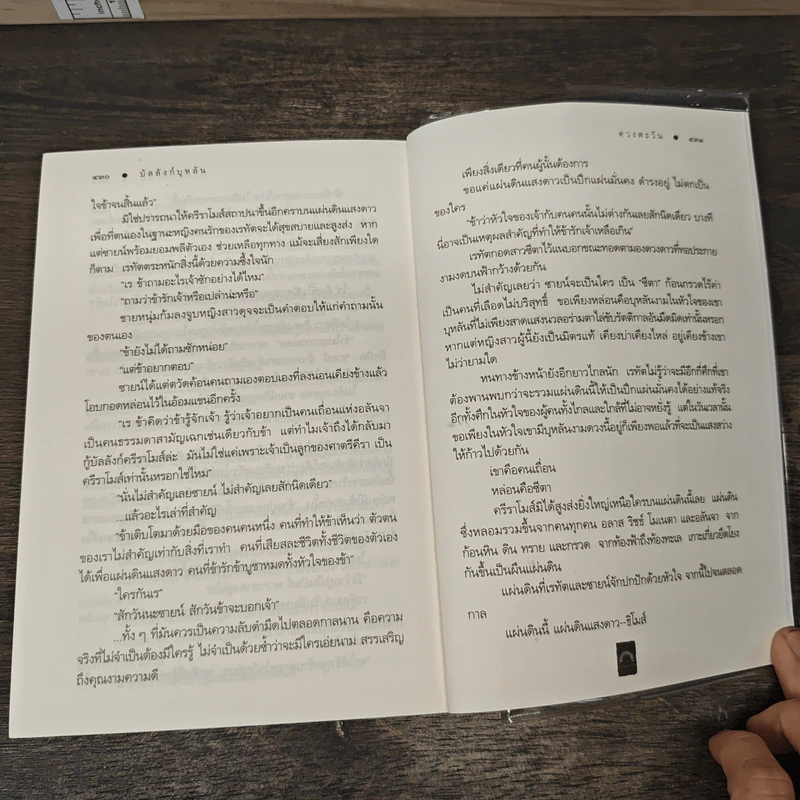 ๔๓๐ ● บัลลังก์บุหลัน
ใจข้าจนสิ้นแล้ว”
มิใช่ปรารถนาให้ครีราโมส์สถาปนาขึ้นอีกคราบนแผ่นดินแสงดาว
เพื่อที่ตนเองในฐานะหญิงคนรักของเรทัตจะได้สุขสบายและสูงส่ง หาก
แต่ซายน์พร้อมยอมพลีตัวเอง ช่วยเหลือทุกทาง แม้จะเสี่ยงสักเพียงใด
ก็ตาม เรทัตตระหนักสิ่งนี้ด้วยความซึ้งใจนัก
“เร ข้าถามอะไรเจ้าซักอย่างได้ไหม”
“ถามว่าข้ารักเจ้าหรือเปล่าน่ะหรือ”
ชายหนุ่มก้มลงจูบหญิงสาวดุจจะเป็นคำตอบให้แก่คำถามนั้น
ของตนเอง
“ข้ายังไม่ได้ถามซักหน่อย”
“แต่ข้าอยากตอบ”
ซายน์ได้แต่ตวัดค้อนคนถามเองตอบเองที่ลงนอนเคียงข้างแล้ว
โอบกอดหล่อนไว้ในอ้อมแขนอีกครั้ง
“เร ข้าคิดว่าข้ารู้จักเจ้า รู้ว่าเจ้าอยากเป็นคนเถื่อนแห่งอลันจา
เป็นคนธรรมดาสามัญเฉกเช่นเดียวกับข้า แต่ทำไมเจ้าถึงได้กลับมา
กู้บัลลังก์ครีราโมส์ล่ะ มันไม่ใช่แค่เพราะเจ้าเป็นลูกของศาตรีคีรา เป็น
ครีราโมส์เท่านั้นหรอกใช่ไหม”
“นั่นไม่สำคัญเลยซายน์ ไม่สำคัญเลยสักนิดเดียว”
...แล้วอะไรเล่าที่สำคัญ
“ข้าเติบโตมาด้วยมือของคนคนหนึ่ง คนที่ทำให้ข้าเห็นว่า ตัวตน
ของเราไม่สำคัญเท่ากับสิ่งที่เราทำ คนที่เสียสละชีวิตทั้งชีวิตของตัวเอง
ได้เพื่อแผ่นดินแสงดาว คนที่ข้ารักข้าบูชาหมดทั้งหัวใจของข้า”
“ใครกันเร”
“สักวันนะซายน์ สักวันข้าจะบอกเจ้า”
...ทั้ง ๆ ที่มันควรเป็นความลับดำมืดไปตลอดกาลนาน คือความ
จริงที่ไม่จำเป็นต้องมีใครรู้ ไม่จำเป็นด้วยซ้ำว่าจะมีใครเอ่ยนาม สรรเสริญ
ถึงคุณงามความดี
ดวงตะวัน ● ๔๓๑
เพียงสิ่งเดียวที่คนผู้นั้นต้องการ
ขอแค่แผ่นดินแสงดาวเป็นปึกแผ่นมั่นคง ดำรงอยู่ ไม่ตกเป็น
ของใคร
“ข้าว่าหัวใจของเจ้ากับคนคนนั้นไม่ต่างกันเลยสักนิดเดียว บางที
นี่อาจเป็นเหตุผลสำคัญที่ทำให้ข้ารักเจ้าเหลือเกิน”
เรทัตกอดสาวซีตาไว้แนบอกขณะทอดตามองดวงดาวที่ทอประกาย
งามงดบนฟ้ากว้างด้วยกัน
ไม่สำคัญเลยว่า ซายน์จะเป็นใคร เป็น “ซีตา” ก้อนกรวดไร้ค่า
เป็นคนที่เลือดไม่บริสุทธิ์ ขอเพียงหล่อนคือบุหลันงามในหัวใจของเขา
บุหลันที่ไม่เพียงสาดแสงนวลอร่ามตาไล่ขับรัตติกาลอันมืดมิดเท่านั้นหรอก
หากแต่หญิงสาวผู้นี้ยังเป็นมิตรแท้ เคียงบ่าเคียงไหล่ อยู่เคียงข้างเขา
ไม่ว่ายามใด
หนทางข้างหน้ายังอีกยาวไกลนัก เรทัตไม่รู้ว่าจะมีอีกกี่ศึกที่เขา
ต้องพานพบกว่าจะรวมแผ่นดินนี้ให้เป็นปึกแผ่นมั่นคงได้อย่างแท้จริง
อีกทั้งศึกในหัวใจของผู้คนทั้งไกลและใกล้ที่ไม่อาจหยั่งรู้ แต่ในวันเวลานั้น
ขอเพียงในหัวใจเขามีบุหลันงามดวงนี้อยู่ก็เพียงพอแล้วที่จะเป็นแสงสว่าง
ให้ก้าวไปด้วยกัน
เขาคือคนเถื่อน
หล่อนคือซีตา
ครีราโมส์มิได้สูงส่งยิ่งใหญ่เหนือใครบนแผ่นดินนี้เลย แผ่นดิน
ซึ่งหลอมรวมขึ้นจากคนทุกคน อลาส วิชช์ โมเนตา และอลันจา จาก
ก้อนหิน ดิน ทราย และกรวด จากท้องฟ้าถึงท้องทะเล เกาะเกี่ยวยึดโยง
กันขึ้นเป็นผืนแผ่นดิน
แผ่นดินที่เรทัตและซายน์จักปกปักด้วยหัวใจ จากนี้ไปจนตลอด
กาล
แผ่นดินนี้ แผ่นดินแสงดาว-ชิโมส์